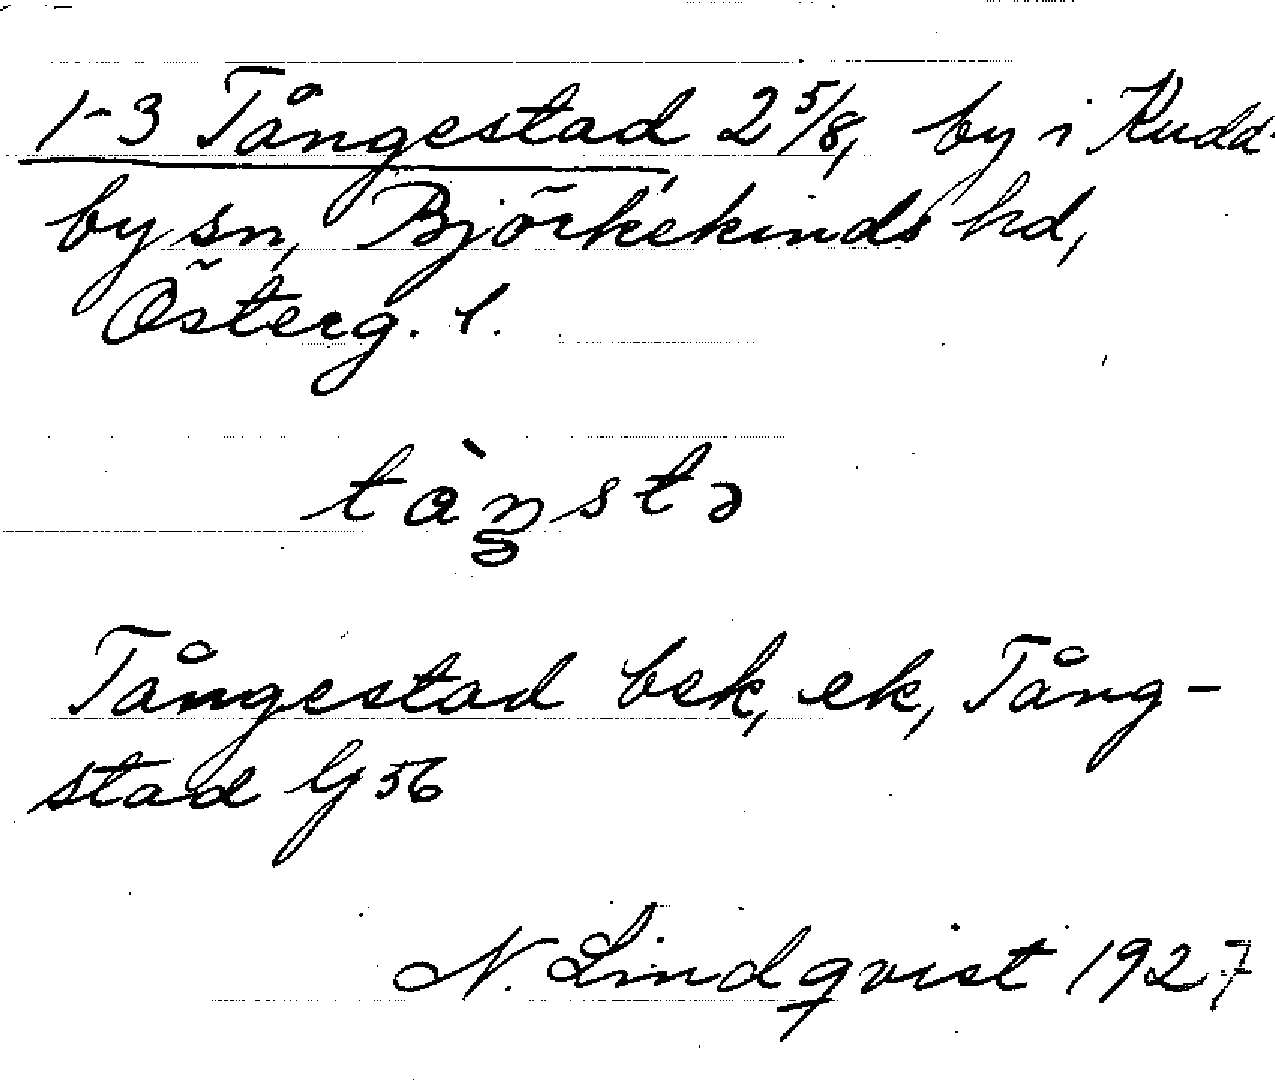 1-3 Tångestad 2 5/8, by i Kudd-
by sn, Björkekinds hd,
Österg. l.
tàŋstə
Tångestad bek, ek, Tång-
stad G 56
N. Lindqvist 1927